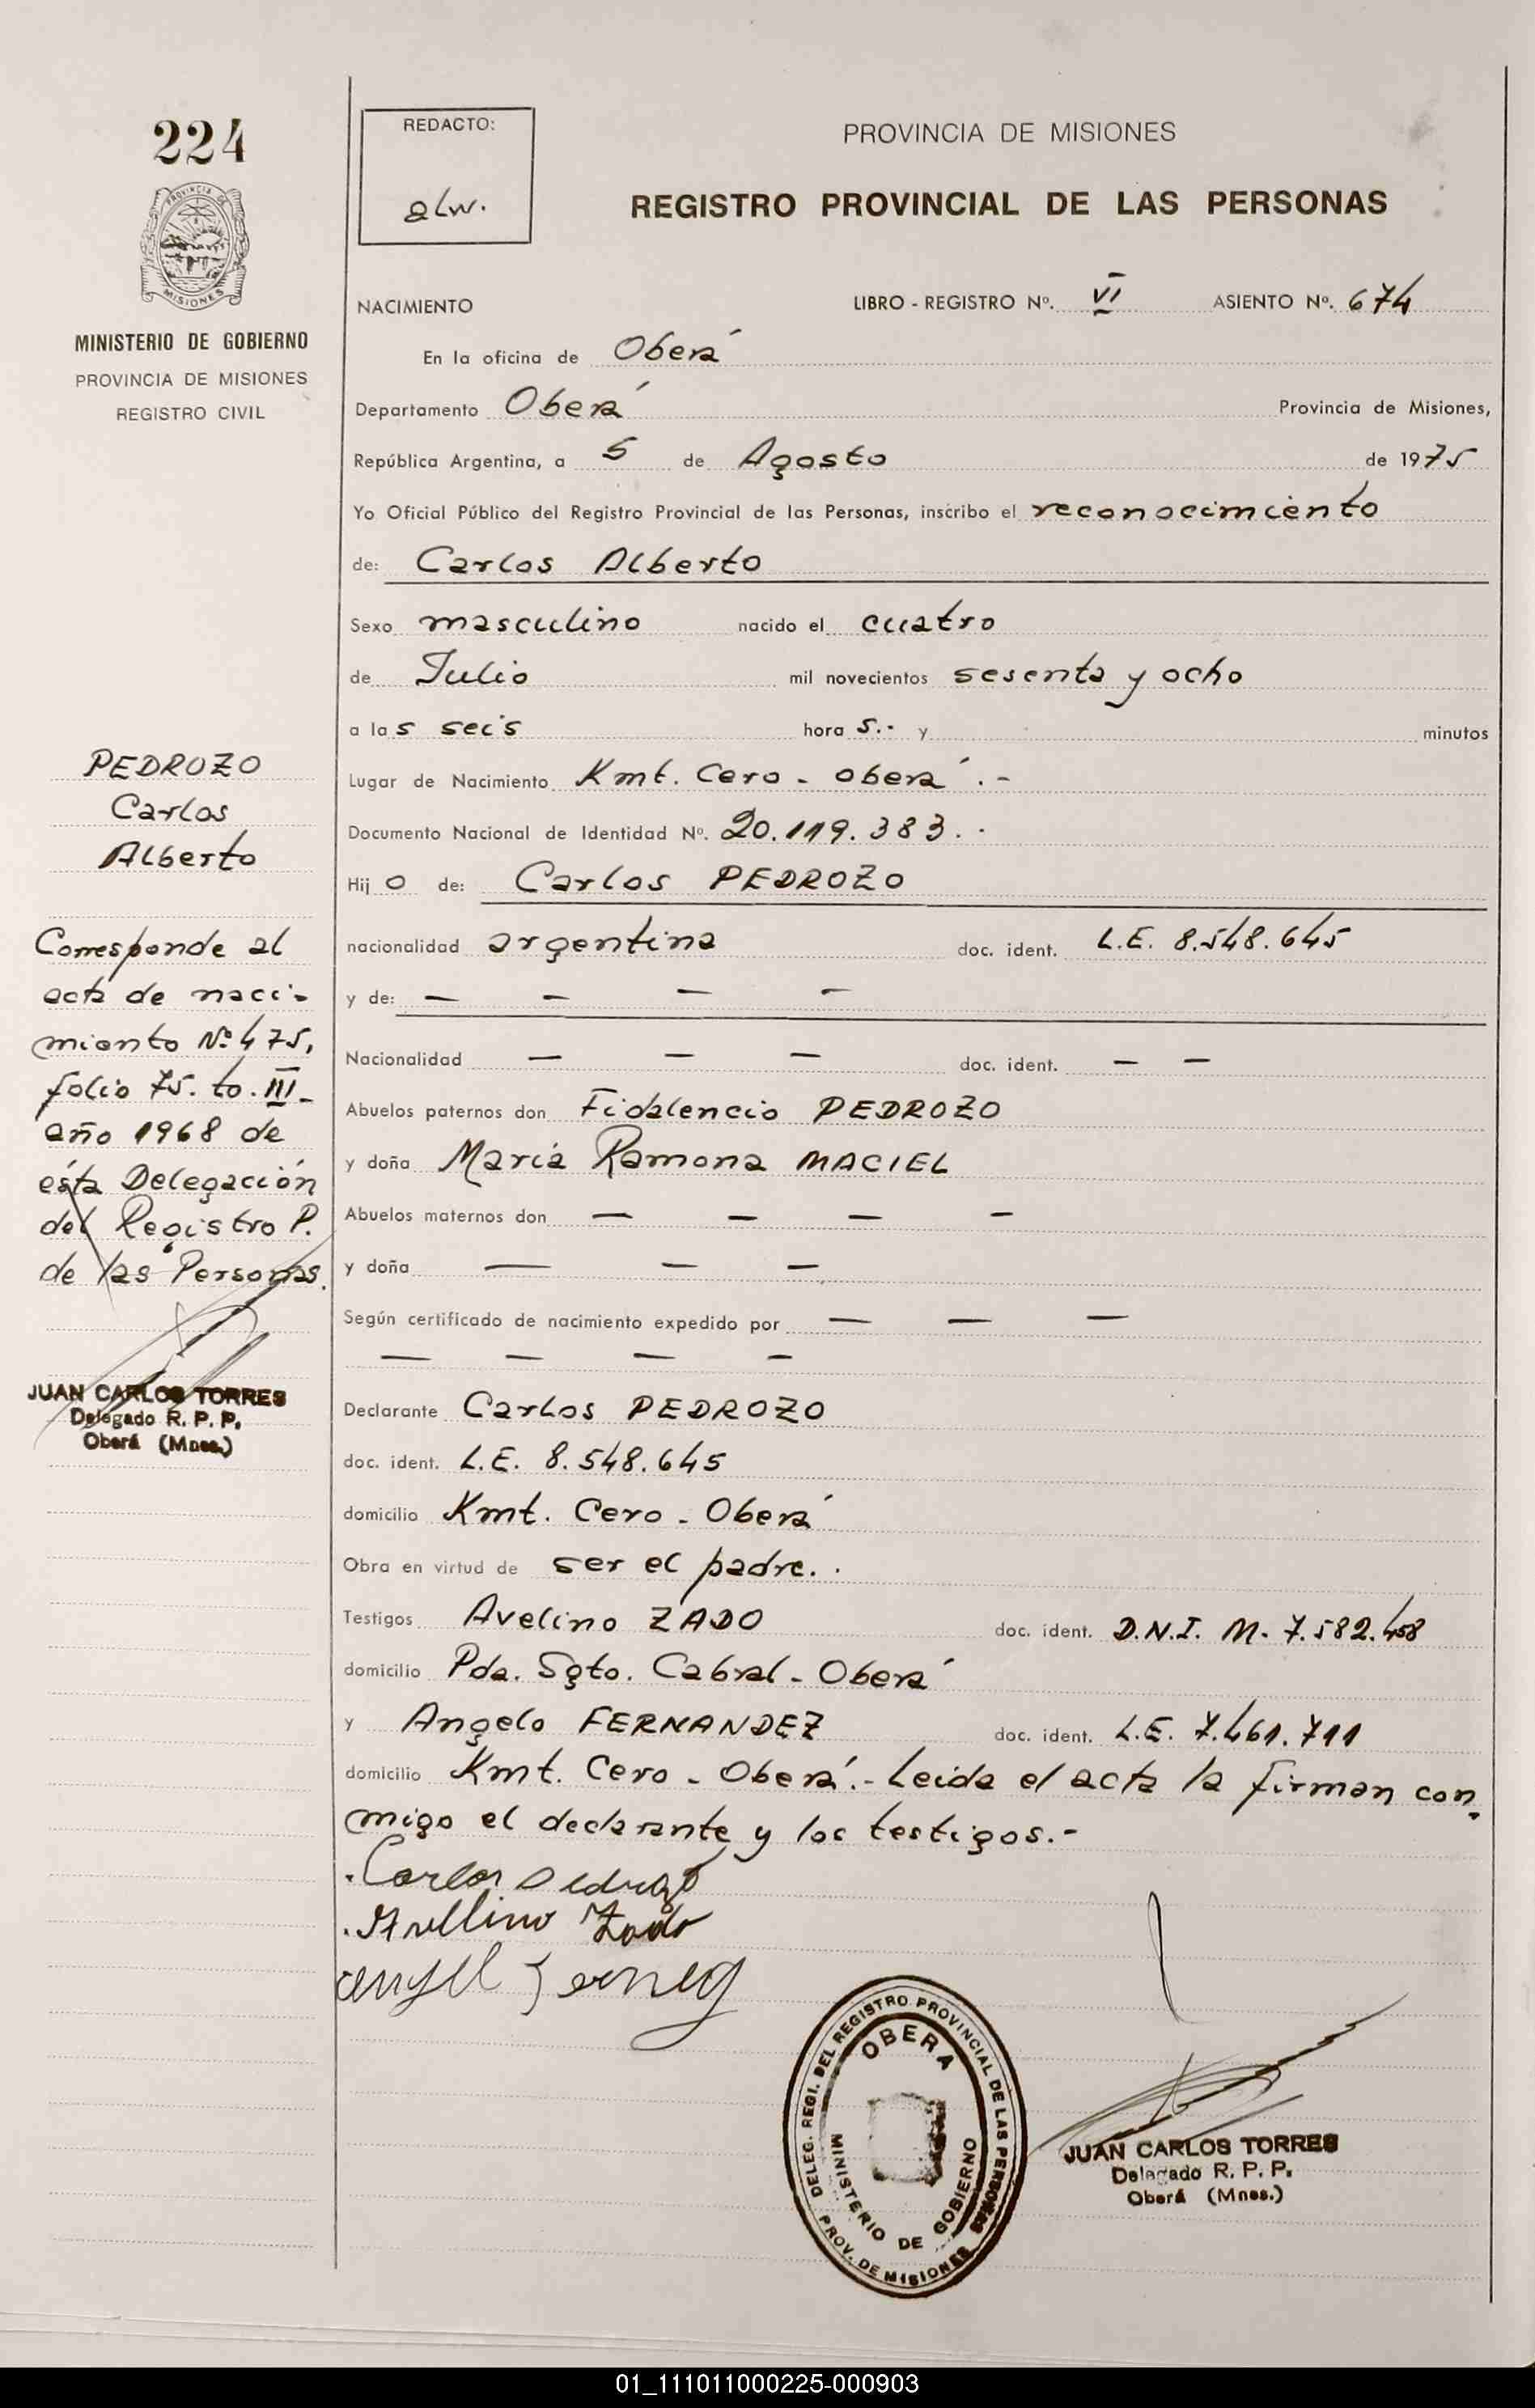 224
PROVINCIA DE MISIONES
MINISTERIO DE GOBIERNO
PROVINCIA DE MISIONES
REGISTRO CIVIL
PEDROZO
Carlos
Alberto
Corresponde al
acta de naci-
miento Nº 475,
folio 75. to. III-
año 1968 de
ésta Delegación
del Registro P.
de las Personas.
JUAN CARLOS TORRES
Delegado R. P. P.
Oberá (Mnes.)
REDACTO:
alw.
PROVINCIA DE MISIONES
REGISTRO PROVINCIAL DE LAS PERSONAS
NACIMIENTO LIBRO - REGISTRO Nº. VI ASIENTO Nº. 674
En la oficina de Oberá
Departamento Oberá Provincia de Misiones,
República Argentina, a 5 de Agosto de 1975
Yo Oficial Público del Registro Provincial de las Personas, inscribo el reconocimiento
de: Carlos Alberto
Sexo masculino nacido el cuatro
de Julio mil novecientos sesenta y ocho
a las seis hora s.- y minutos
Lugar de Nacimiento Kmt. Cero - Oberá.-
Documento Nacional de Identidad Nº. 20.119.383.-
Hijo de: Carlos PEDROZO
nacionalidad argentina doc. ident. L.E. 8.548.645
y de: — — — —
Nacionalidad — — — doc. ident. — —
Abuelos paternos don Fidelencio PEDROZO
y doña María Ramona MACIEL
Abuelos maternos don — — — —
y doña — — —
Según certificado de nacimiento expedido por — — —
— — — —
Declarante Carlos PEDROZO
doc. ident. L.E. 8.548.645
domicilio Kmt. Cero - Oberá
Obra en virtud de ser el padre.-
Testigos Avelino ZADO doc. ident. D.N.I. M- 7.582.458
domicilio Pda. Sgto. Cabral - Oberá
y Angelo FERNANDEZ doc. ident. L.E. 7.461.711
domicilio Kmt. Cero - Oberá.- Leida el acta la firman con-
migo el declarante y los testigos.-
Carlos Pedrozo
Avellino Zado
DELEG. REGI. DEL REGISTRO PROVINCIAL DE LAS PERSONAS
OBERA
MINISTERIO DE GOBIERNO
PROV. DE MISIONES
JUAN CARLOS TORRES
Delegado R. P. P.
Oberá (Mnes.)
01_111011000225-000903